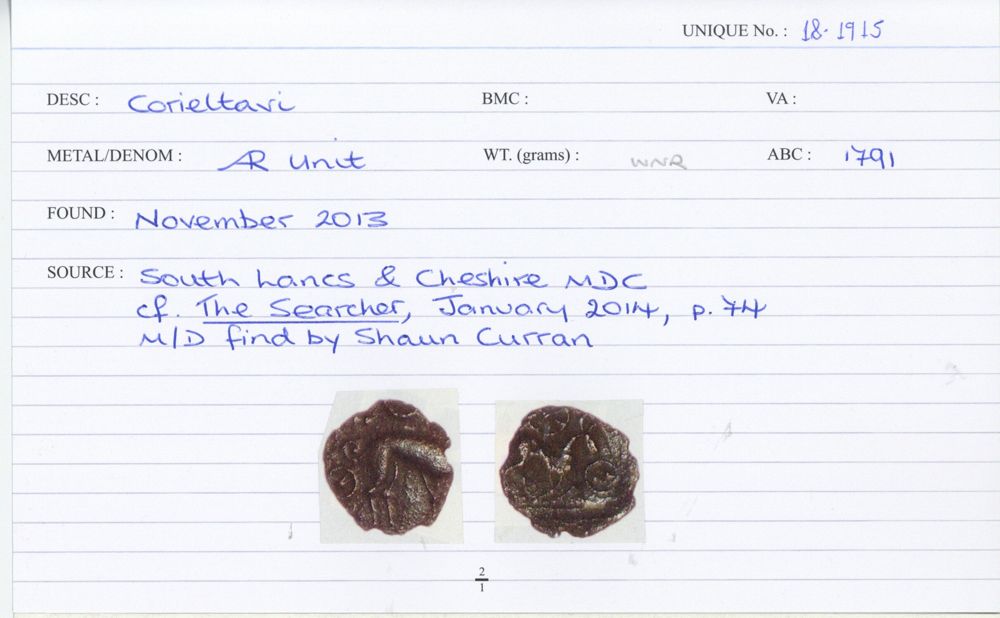 UNIQUE No. : 18-1915
DESC : Corieltavi BMC : VA :
METAL/DENOM : AR Unit WT. (grams) : WNR ABC : 1791
FOUND : November 2013
SOURCE : South Lancs & Cheshire MDC
cf. The Searcher, January 2014, p. 74
M/D find by Shaun Curran
2
1